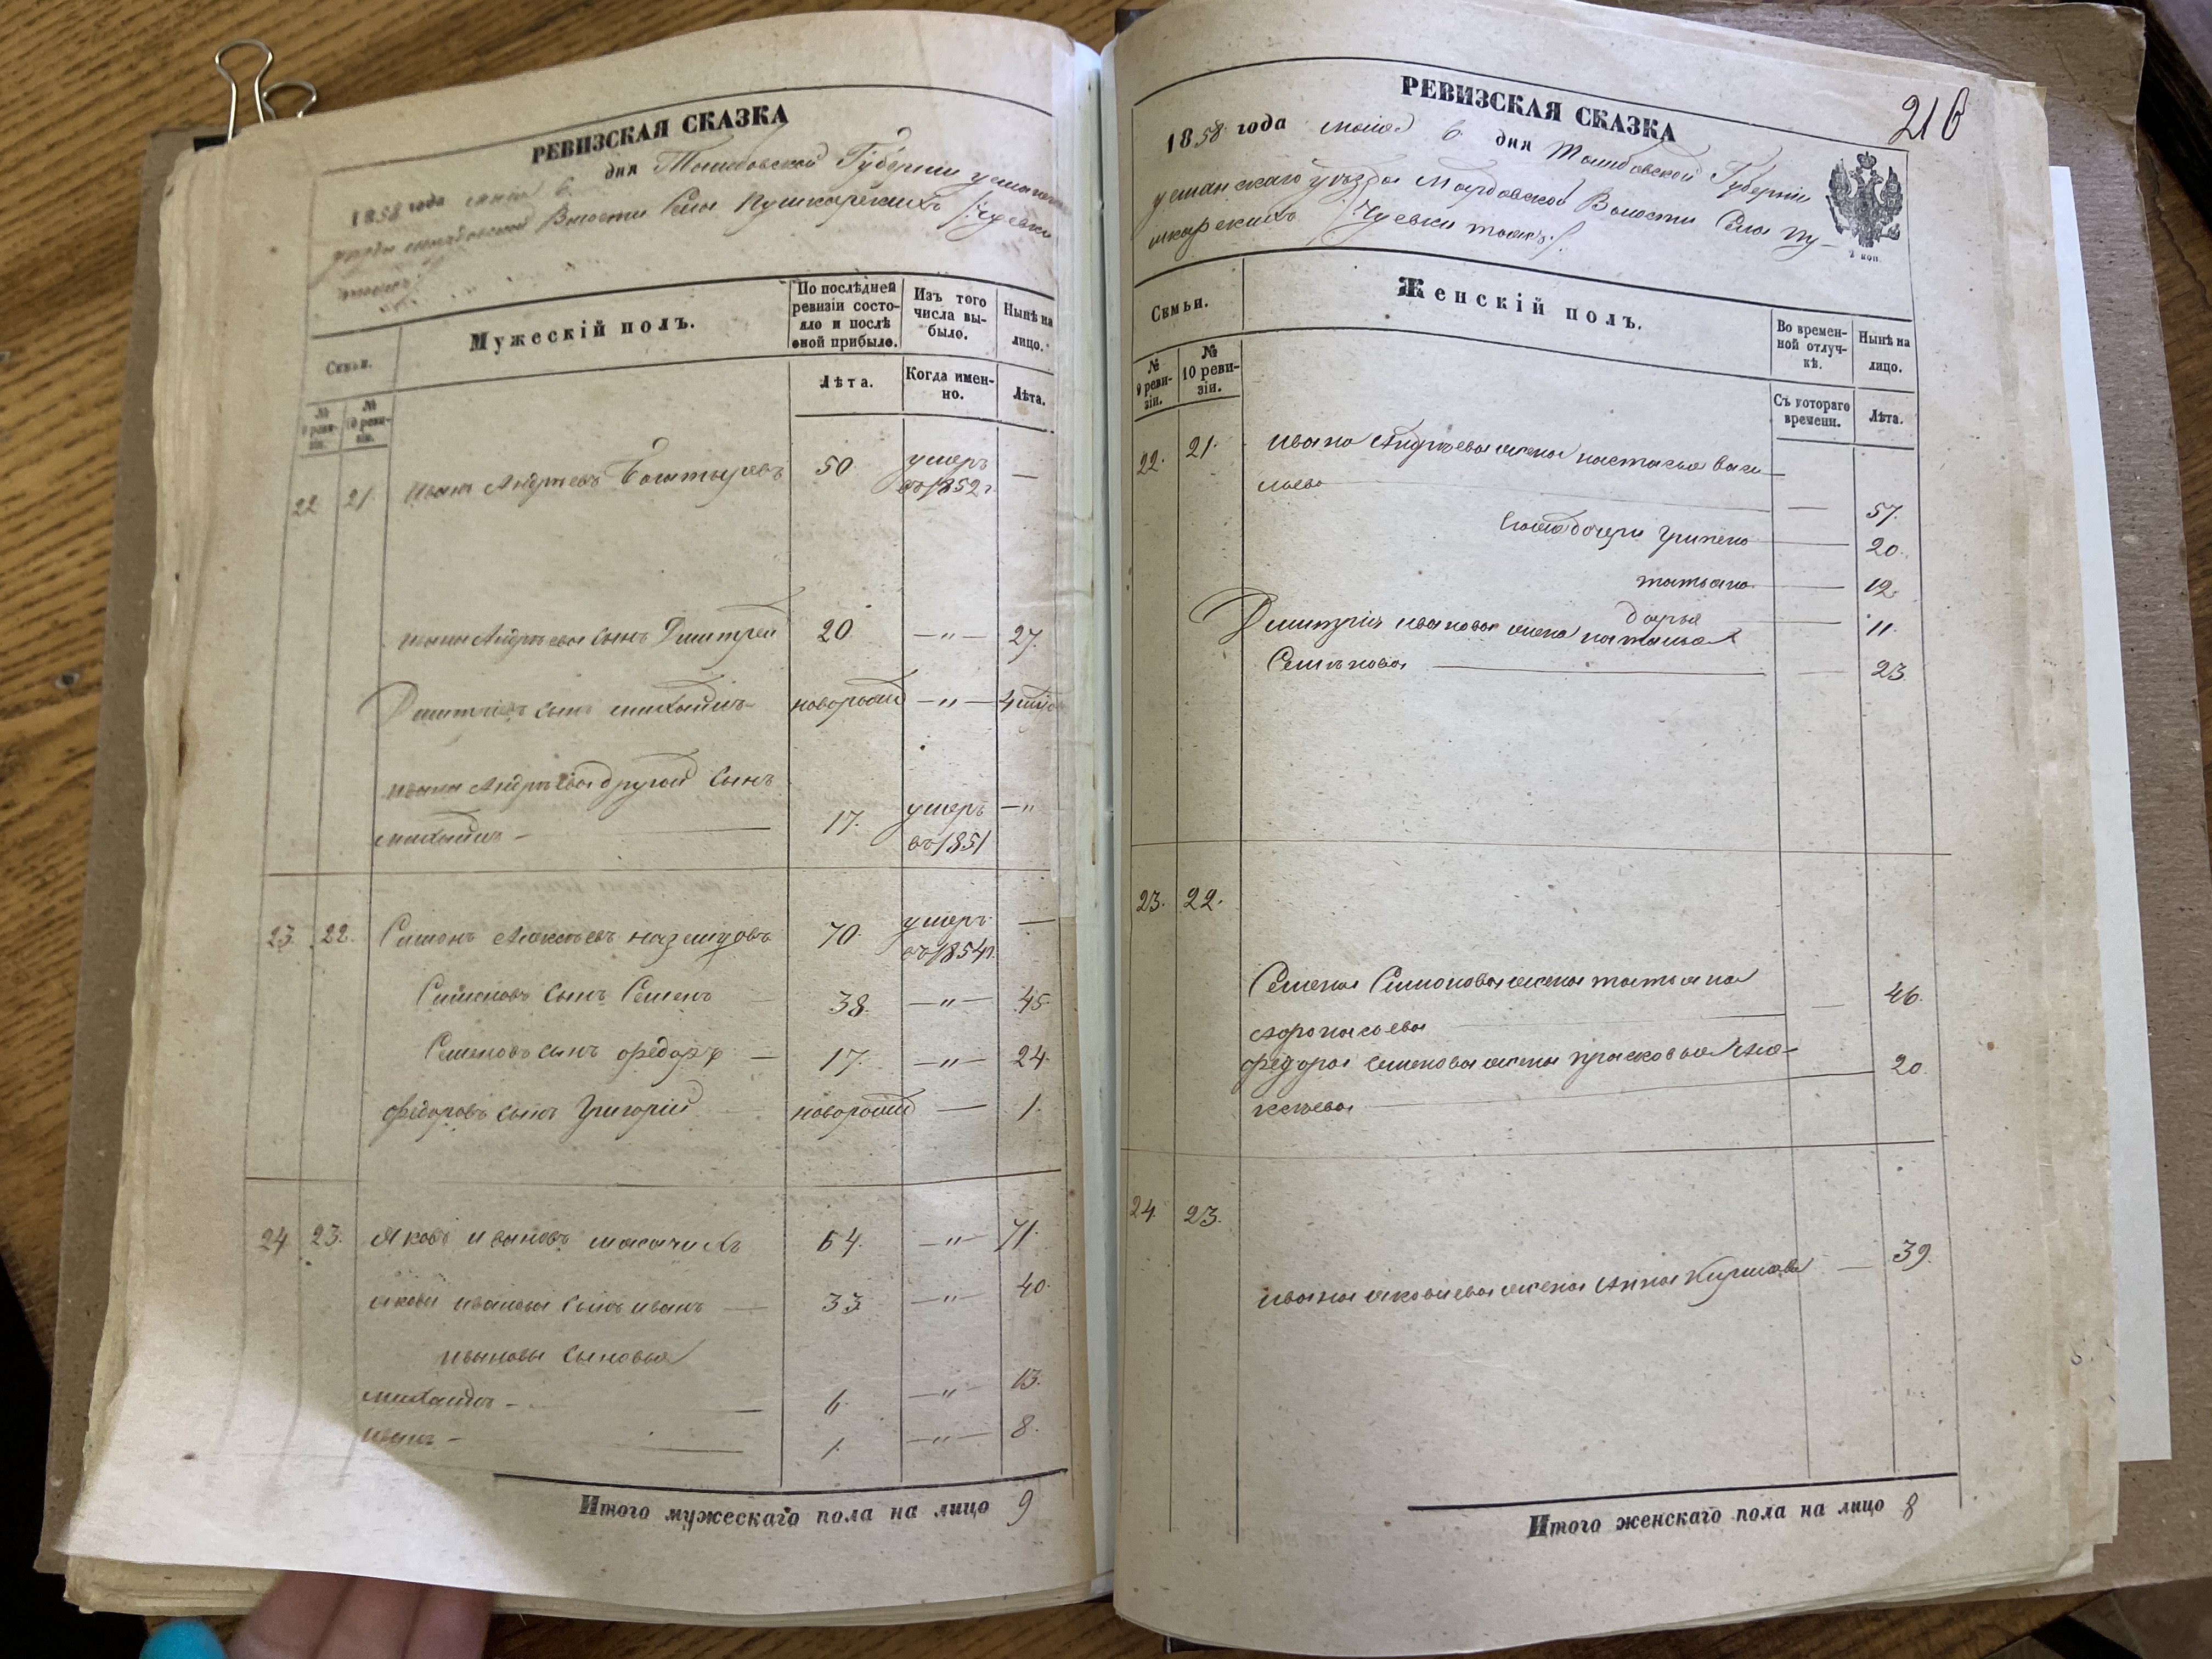 РЕВИЗСКАЯ СКАЗКА
1858 года мая 6 дня Тамбовской Губернии усманскаго
уезда Волости Села Пушкарскихъ /:Чуевки
тожъ
Семьи.
Мужескій полъ.
По послѣдней ревизіи состояло и послѣ оной прибыло.
Изъ того числа выбыло.
Нынѣ на лицо.
№ 9 ревизіи.
№ 10 ревизіи.
Лѣта.
Когда именно.
Лѣта.
22 21. Иванъ Андреевъ Богатыревъ 50. умеръ въ 1852 г —
ивана Андреева Сынъ Дмитрей 20. —"— 27.
Дмитріевъ Сынъ михайлъ новорожд —"— 4
ивана Андреева другой Сынъ
михайлъ — 17. умеръ въ 1851 —"
23. 22. Симонъ Алексѣевъ 70. умеръ въ 1854 г. —
Симоновъ Сынъ Семенъ 38. —"— 45.
Семеновъ сынъ федоръ — 17. —"— 24.
федоровъ сынъ Григорій новорожд — 1.
24 23. Яковъ ивановъ 64. —"— 71.
якова иванова Сынъ иванъ — 33 —"— 40.
ивановы Сыновья
михаилъ — 6. —"— 13.
иванъ — 1. —"— 8.
Итого мужескаго пола на лицо 9
216
РЕВИЗСКАЯ СКАЗКА
1858 года мая 6 дня Тамбовской Губерніи
усманскаго уезда Мордовской Волости Села Пу-
шкарскихъ /:Чуевки тожъ:/.
2 коп.
Семьи.
Женскій полъ.
Во временной отлучкѣ.
Нынѣ на лицо.
№ 9 ревизіи.
№ 10 ревизіи.
Съ котораго времени.
Лѣта.
22. 21. ивана Андреева жена настасья Васи
льева — 57.
дочери Грипена — 20.
татьяна — 12.
дарья — 11.
Дмитрія иванова жена наталья
Семенова — 23.
23. 22.
Семена Симонова жена татьяна
Афонасьева — 46.
федора семенова жена прасковья Але-
ксеева 20.
24. 23.
ивана яковлева жена Анна — 39.
Итого женскаго пола на лицо 8